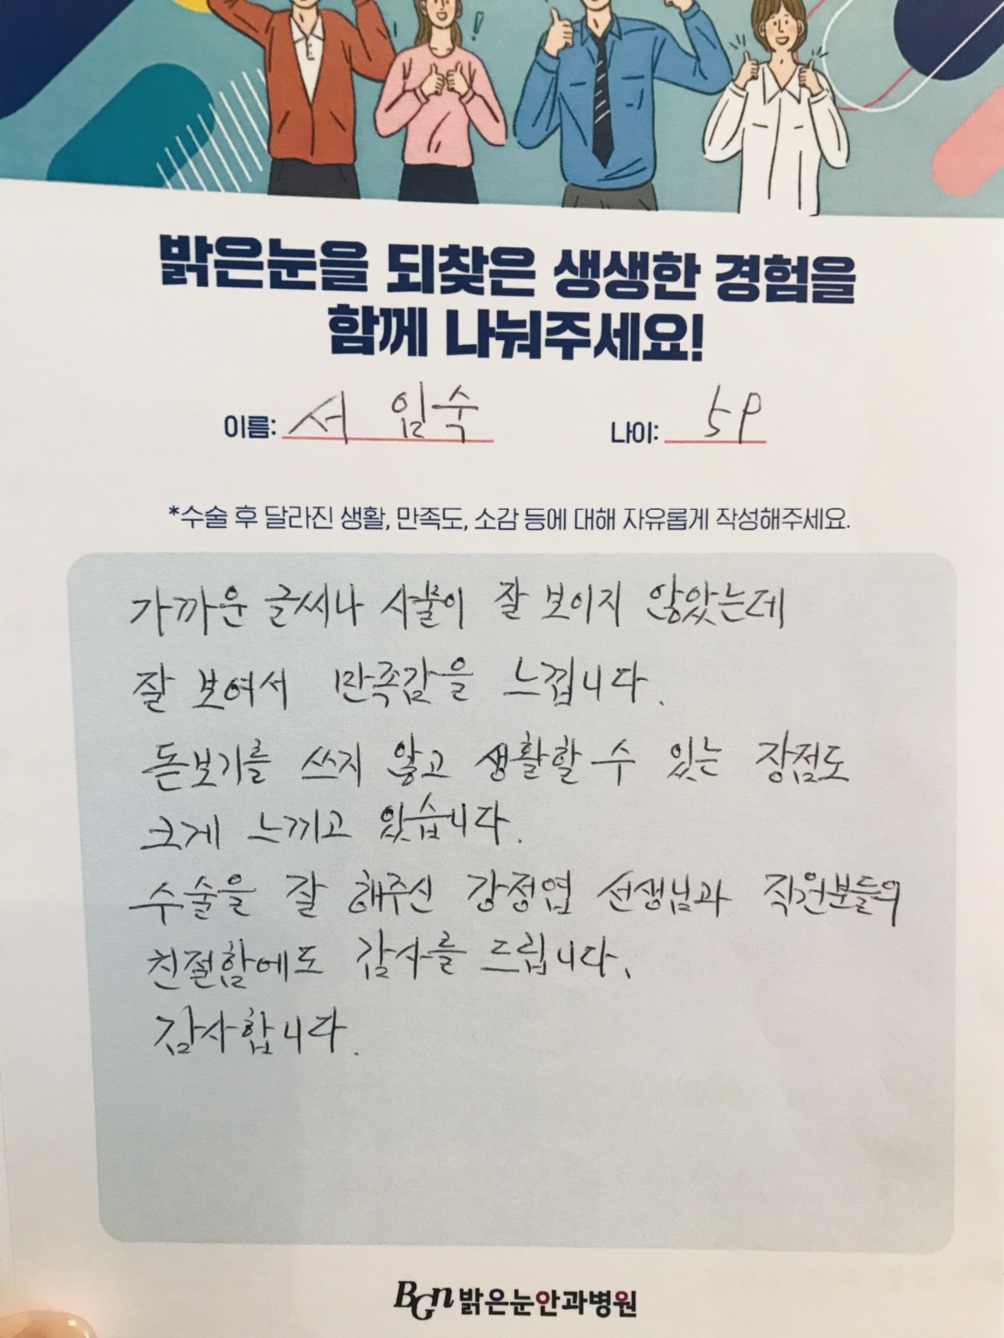 밝은눈을 되찾은 생생한 경험을
함께 나눠주세요!
이름: 서 임숙 나이: 59
*수술 후 달라진 생활, 만족도, 소감 등에 대해 자유롭게 작성해주세요.
가까운 글씨나 사물이 잘 보이지 않았는데
잘 보여서 만족감을 느낍니다.
돋보기를 쓰지 않고 생활할 수 있는 장점도
크게 느끼고 있습니다.
수술을 잘 해주신 강정엽 선생님과 직원분들의
친절함에도 감사를 드립니다.
감사합니다.
BGn 밝은눈안과병원